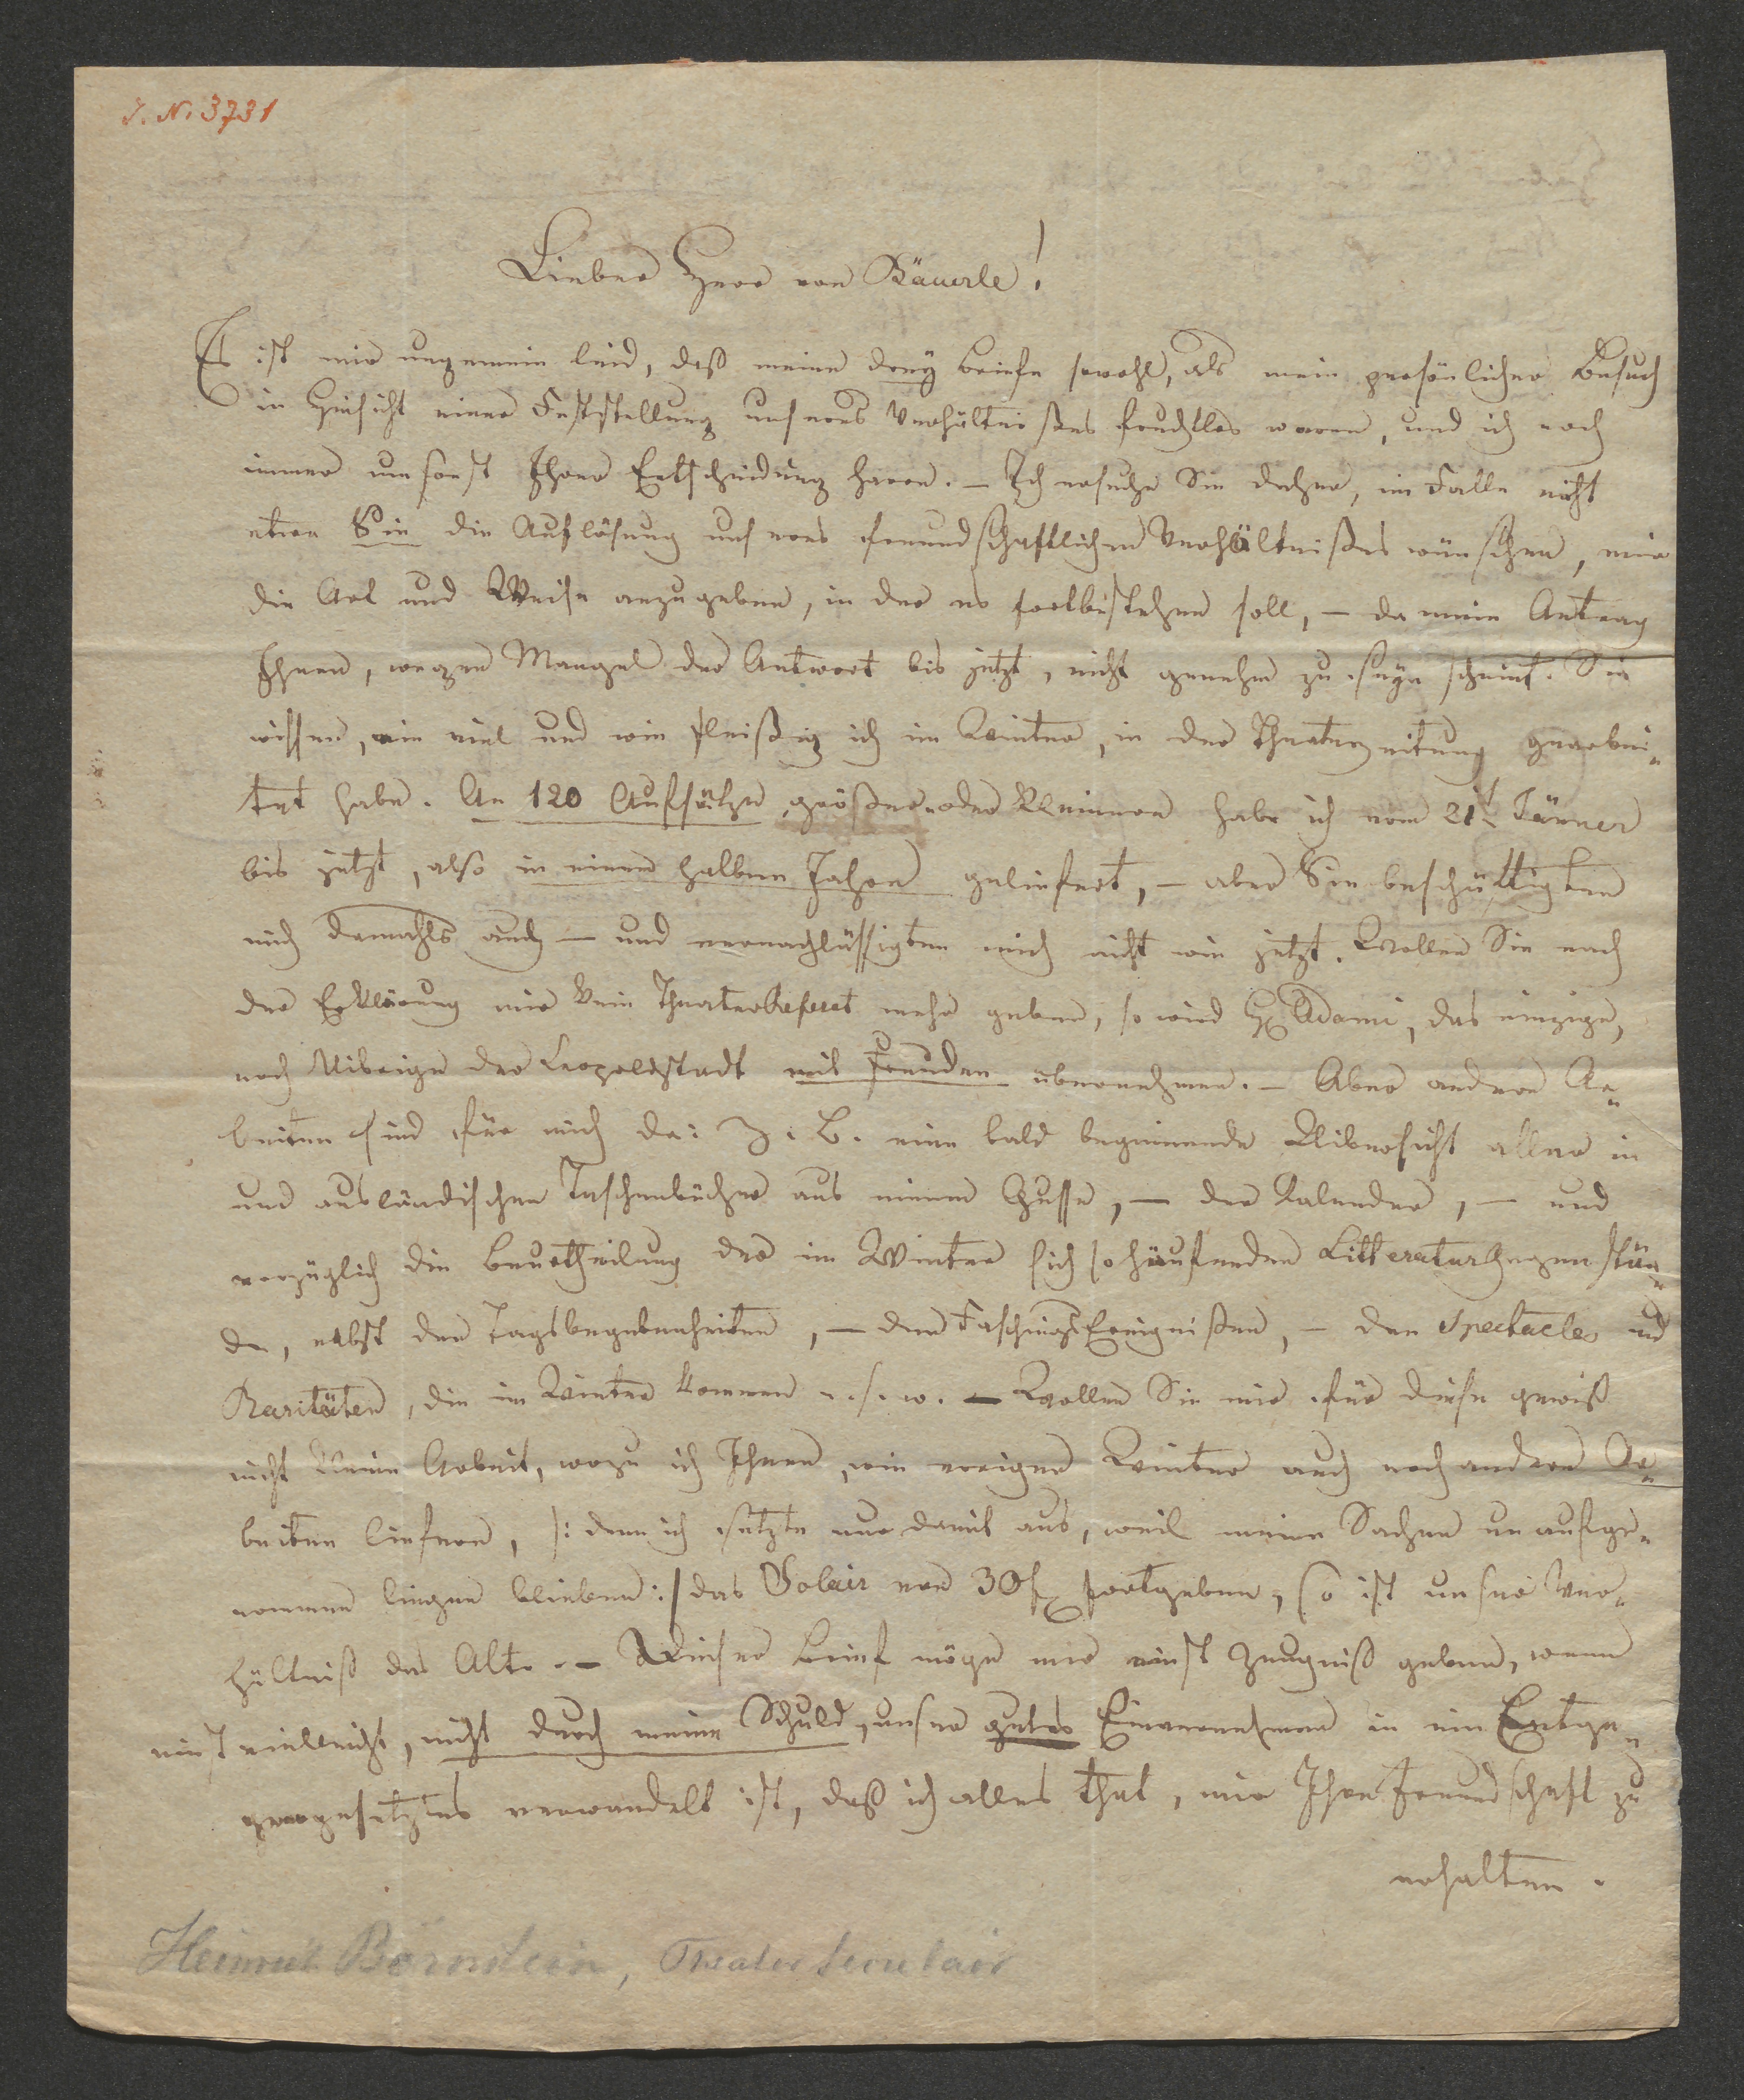 I. N. 3731
Lieber Herr von Bäuerle!
Es ist mir ungemein leid, daß meine drey Briefe sowohl, als mein persönlicher Besuch
in Hinsicht einer Feststellung unseres Verhältnißes fruchtlos waren, und ich noch
immer umsonst Ihrer Entscheidung harre. – Ich ersuche Sie daher, im Falle nicht
etwa Sie die Auflösung unseres freundschaftlichen Verhältnißes wünschen, mir
die Art und Weise anzugeben, in der es fortbestehen soll, – da mein Antrag
Ihnen, wegen Mangel der Antwort bis jetzt, nicht genehm zu seyn scheint. Sie
wissen, wie viel und wie fleißig ich im Winter, in der Theaterzeitung gearbei„
tet habe. An 120 Aufsätze, größere oder kleinere habe ich vom 21t Jänner
bis jetzt, also in einem halben Jahre geliefert, – aber Sie beschäftigten
mich damahls auch – und vernachlässigten mich nicht wie jetzt. Wollen Sie nach
der Erklärung mir kein TheaterReferat mehr geben, so wird H Adami, das einzige,
noch Uibrige der Leopoldstadt mit Freuden übernehmen. – Aber andere Ar„
beiten sind für mich da: Z. B. eine bald beginnende Uibersicht aller in
und ausländischen Taschenbücher aus einem Gusse, – der Kalender, – und
vorzüglich die Beurtheilung der im Winter sich so häufenden Litteraturgegenstän„
de, nebst den Tagsbegebenheiten, – den FaschingsEreignißen, – den Spectacles und
Raritäten, die im Winter kommen u. s. w. – Wollen Sie mir für diese gewiß
nicht kleine Arbeit, wozu ich Ihnen, wie vorigen Winter auch noch andere Ar„
beiten liefere, /: denn ich setzte nur damit aus, weil meine Sachen unaufge„
nommen liegen blieben :/ das Solair von 30 f fortgeben, so ist unser Ver„
hältniß das Alte. – Dieser Brief möge mir einst Zeugniß geben, wenn
einst vielleicht, nicht durch meine Schuld, unser gutes Einvernehmen in ein Entge„
gengesetztes verwandelt ist, daß ich alles that, mir Ihre Freundschaft zu
erhalten.
Heinrich Börnstein, Theatersecretair